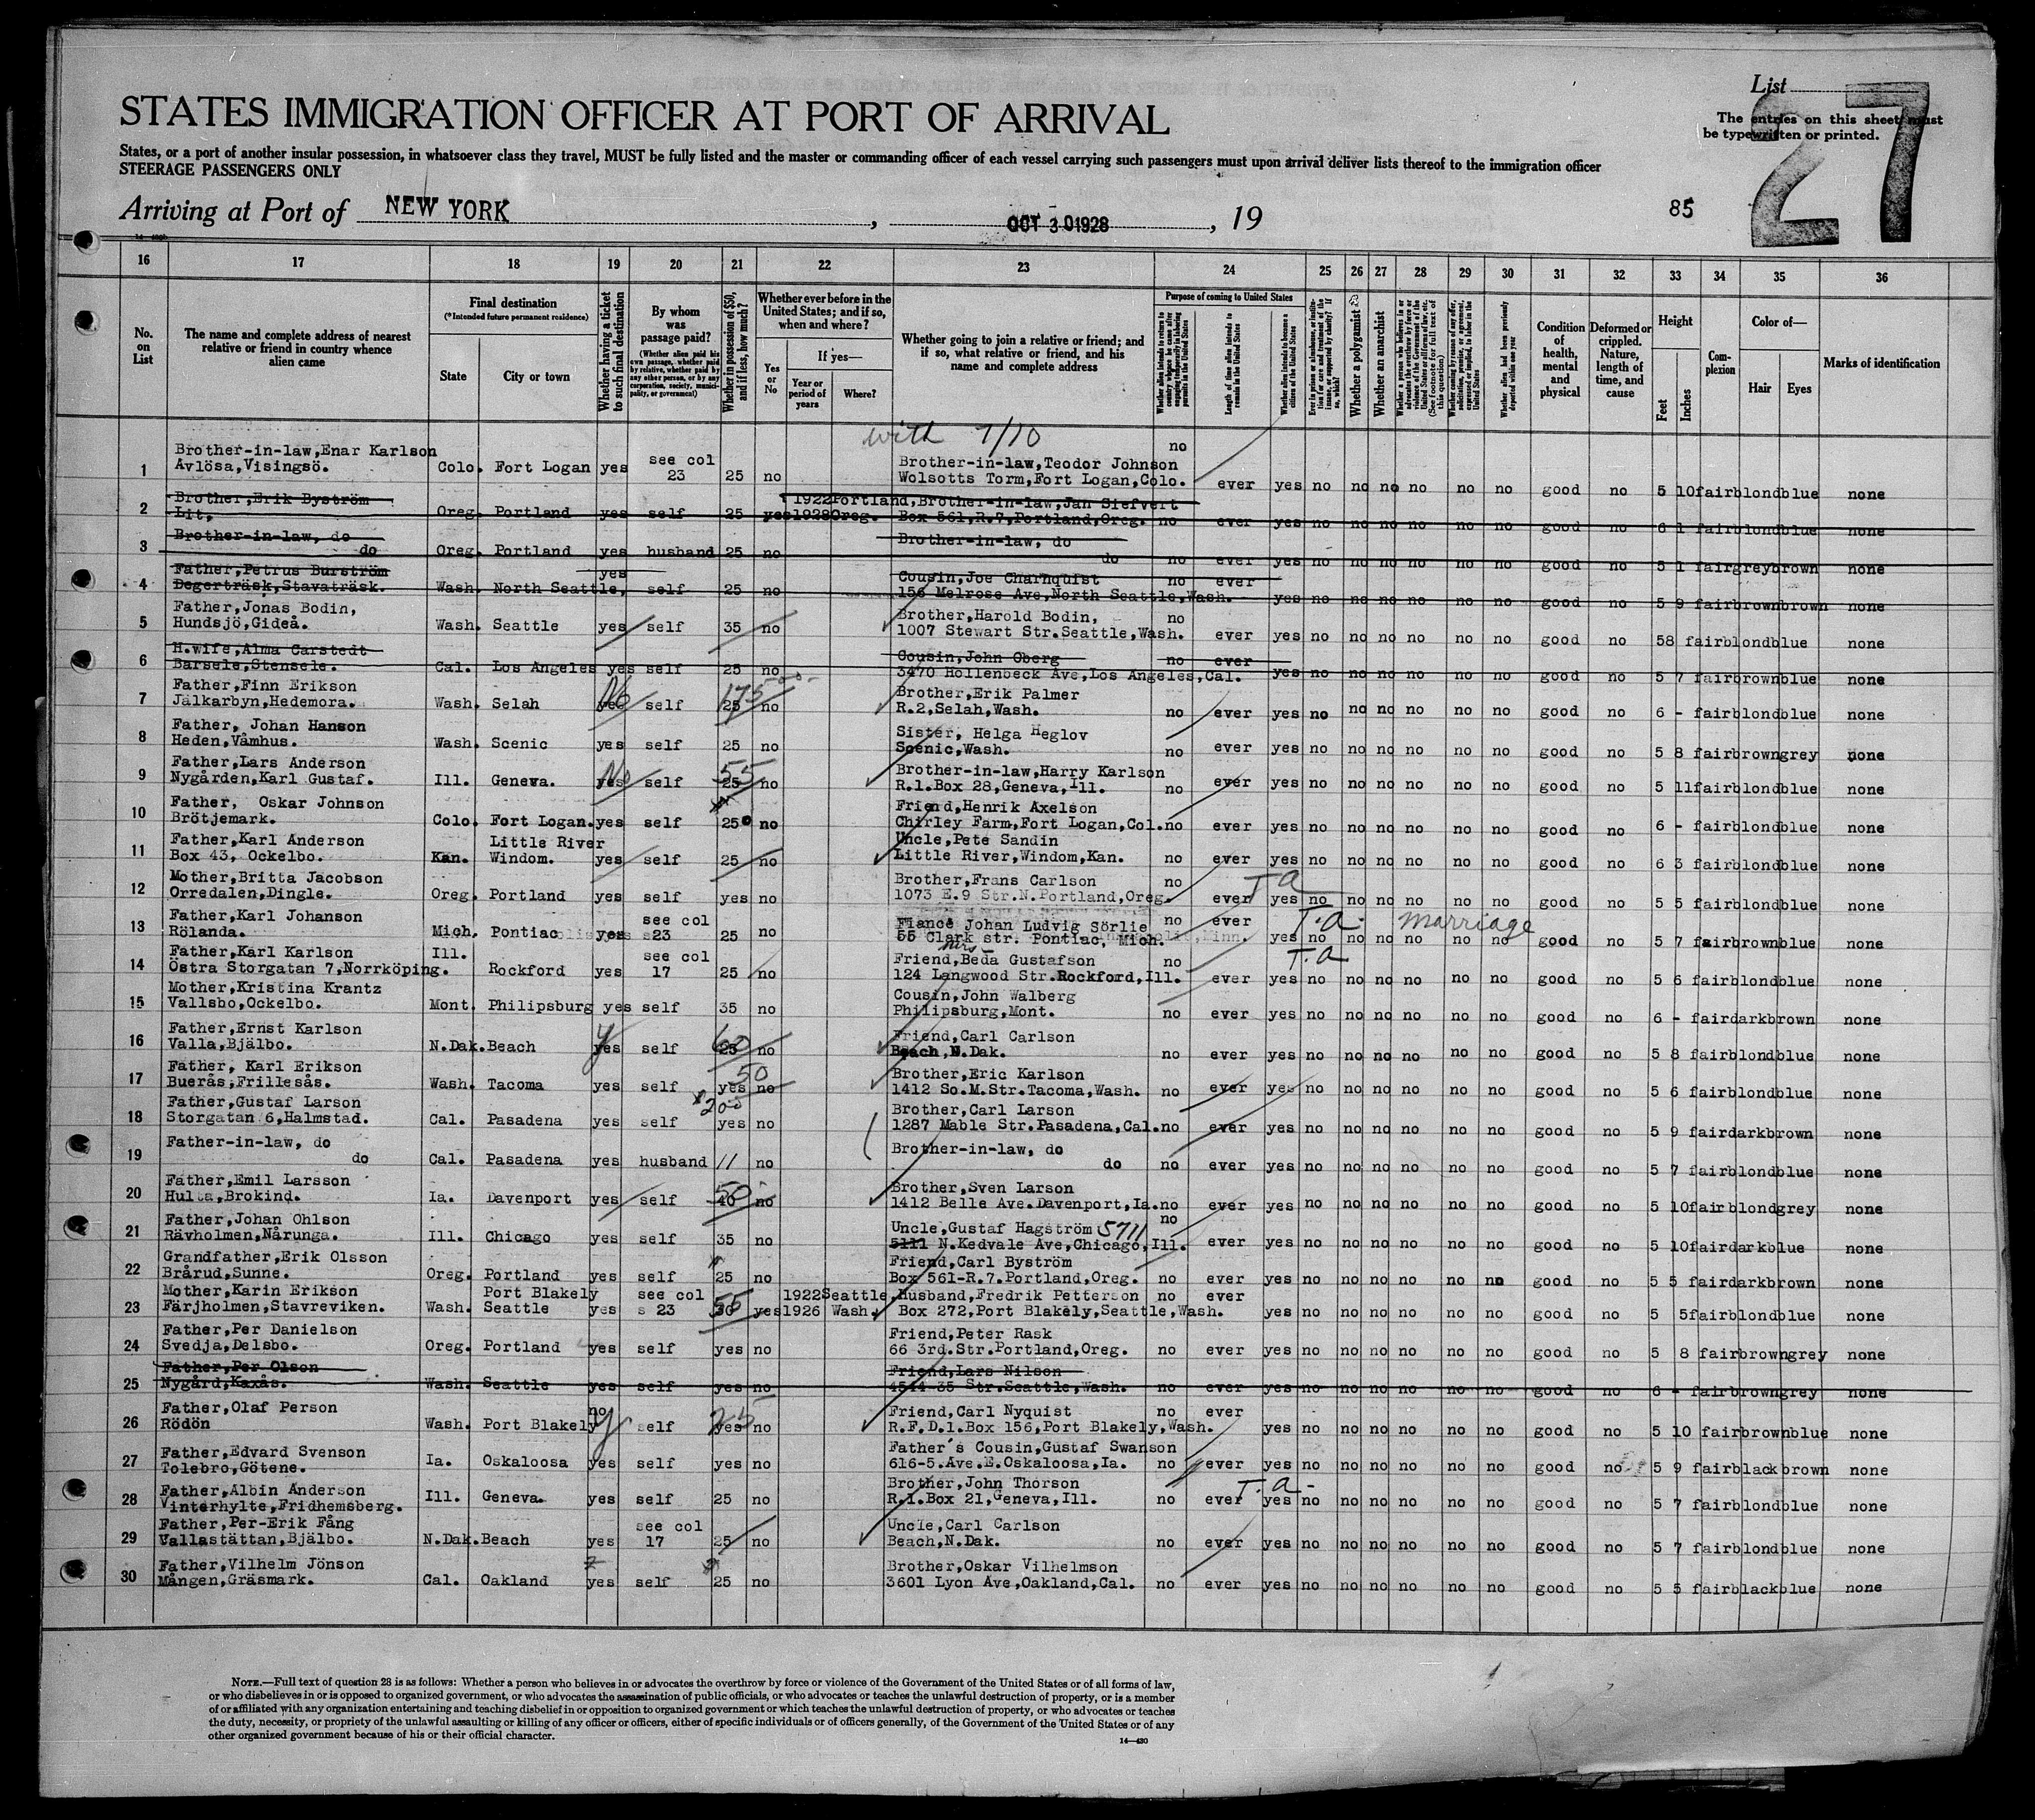 List
27
The entries on this sheet must
be typewritten or printed.
STATES IMMIGRATION OFFICER AT PORT OF ARRIVAL
States, or a port of another insular possession, in whatsoever class they travel, MUST be fully listed and the master or commanding officer of each vessel carrying such passengers must upon arrival deliver lists thereof to the immigration officer
STEERAGE PASSENGERS ONLY
Arriving at Port of NEW YORK, OCT 30 1928, 19
85
16 17 18 19 20 21 22 23 24 25 26 27 28 29 30 31 32 33 34 35 36
No. on List
The name and complete address of nearest relative or friend in country whence alien came
Final destination
(*Intended future permanent residence)
State
City or town
Whether having a ticket to such final destination
By whom was passage paid?
(Whether alien paid his own passage, whether paid by relative, whether paid by any other person, or by any corporation, society, municipality, or government)
Whether in possession of $50, and if less, how much?
Whether ever before in the United States; and if so, when and where?
Yes or No
If yes—
Year or period of years
Where?
Whether going to join a relative or friend; and if so, what relative or friend, and his name and complete address
Purpose of coming to United States
Length of time alien intends to remain in the United States
Whether alien intends to become a citizen of the United States
Whether a polygamist
Whether an anarchist
Condition of health, mental and physical
Deformed or crippled. Nature, length of time, and cause
Height
Feet
Inches
Complexion
Color of—
Hair
Eyes
Marks of identification
with 7/10
Brother-in-law,Enar Karlson no
1 Avlösa,Visingsö. Colo. Fort Logan yes see col 23 25 no Brother-in-law,Teodor Johnson
Wolsotts Torm,Fort Logan,Colo. ever yes no no no no no no good no 5 10 fair blond blue none
Brother,Erik Byström 1922 Portland, Brother-in-law,Jan Siefvert
2 Lit, Oreg. Portland yes self 25 yes 1928 Oreg. Box 561,R.7,Portland,Oreg. no ever yes no no no no no no good no 6 1 fair blond blue none
Brother-in-law, do Brother-in-law, do
3 do Oreg. Portland yes husband 25 no do no ever yes no no no no no no good no 5 1 fair grey brown none
Father,Petrus Burström yes Cousin,Joe Charnquist no ever
4 Degerträsk,Stavaträsk. Wash. North Seattle, self 25 no 156 Melrose Ave,North Seattle,Wash. yes no no no no no no good no 5 9 fair brown brown none
Father,Jonas Bodin, Brother,Harold Bodin, no
5 Hundsjö,Gideå. Wash. Seattle yes self 35 no 1007 Stewart Str.Seattle,Wash. ever yes no no no no no no good no 58 fair blond blue none
H.wife,Alma Carstedt Cousin,John Oberg no ever
6 Barsele,Stensele. Cal. Los Angeles yes self 25 no 3470 Hollenbeck Ave,Los Angeles,Cal. yes no no no no no no good no 5 7 fair brown blue none
Father,Finn Erikson No 175 Brother,Erik Palmer
7 Jälkarbyn,Hedemora. Wash. Selah yes self 25 no R.2,Selah,Wash. no ever yes no no no no no no good no 6 - fair blond blue none
Father, Johan Hanson Sister, Helga Heglov
8 Heden,Våmhus. Wash. Scenic yes self 25 no Scenic,Wash. no ever yes no no no no no no good no 5 8 fair brown grey none
Father,Lars Anderson No 55 Brother-in-law,Harry Karlson
9 Nygården,Karl Gustaf. Ill. Geneva. yes self 25 no R.1.Box 28,Geneva,Ill. no ever yes no no no no no no good no 5 11 fair blond blue none
Father, Oskar Johnson Friend,Henrik Axelson
10 Brötjemark. Colo. Fort Logan. yes self 25 no Chirley Farm,Fort Logan,Col. no ever yes no no no no no no good no 6 - fair blond blue none
Father,Karl Anderson Little River Uncle,Pete Sandin
11 Box 43, Ockelbo. Kan. Windom. yes self 25 no Little River,Windom,Kan. no ever yes no no no no no no good no 6 3 fair blond blue none
Mother,Britta Jacobson Brother,Frans Carlson no T a
12 Orredalen,Dingle. Oreg. Portland yes self yes no 1073 E.9 Str.N.Portland,Oreg. ever yes no no no no no no good no 5 5 fair blond blue none
Father,Karl Johanson see col Fiancé Johan Ludvig Sörlie no ever T.a. marriage
13 Rölanda. Mich. Pontiac yes 23 25 no 55 Clark str. Pontiac, Mich. yes no no no no no no good no 5 7 fair brown blue none
Father,Karl Karlson Ill. see col Mrs Friend,Beda Gustafson no T.a
14 Östra Storgatan 7,Norrköping. Rockford yes 17 25 no 124 Langwood Str.Rockford,Ill. ever yes no no no no no no good no 5 6 fair blond blue none
Mother,Kristina Krantz Cousin,John Walberg
15 Vallsbo,Ockelbo. Mont. Philipsburg yes self 35 no Philipsburg,Mont. no ever yes no no no no no no good no 6 - fair dark brown none
Father,Ernst Karlson y 60 Friend,Carl Carlson
16 Valla,Bjälbo. N.Dak. Beach yes self 25 no Beach,N.Dak. no ever yes no no no no no no good no 5 8 fair blond blue none
Father, Karl Erikson 50 Brother,Eric Karlson
17 Buerås,Frillesås. Wash. Tacoma yes self yes no 1412 So.M.Str.Tacoma,Wash. no ever yes no no no no no no good no 5 6 fair blond blue none
Father,Gustaf Larson 200 Brother,Carl Larson
18 Storgatan 6,Halmstad. Cal. Pasadena yes self yes no 1287 Mable Str.Pasadena,Cal. no ever yes no no no no no no good no 5 9 fair dark brown none
Father-in-law, do Brother-in-law, do
19 do Cal. Pasadena yes husband // no do no ever yes no no no no no no good no 5 7 fair blond blue none
Father,Emil Larsson 50 Brother,Sven Larson
20 Hulta,Brokind. Ia. Davenport yes self 40 no 1412 Belle Ave.Davenport,Ia. no ever yes no no no no no no good no 5 10 fair blond grey none
Father,Johan Ohlson Uncle,Gustaf Hagström 5711 no
21 Rävholmen,Nårunga. Ill. Chicago yes self 35 no 5111 N.Kedvale Ave,Chicago,Ill. ever yes no no no no no no good no 5 10 fair dark blue none
Grandfather,Erik Olsson Friend,Carl Byström
22 Brårud,Sunne. Oreg. Portland yes self 25 no Box 561-R.7.Portland,Oreg. no ever yes no no no no no no good no 5 5 fair dark brown none
Mother,Karin Erikson Port Blakely see col 55 1922 Seattle, Husband,Fredrik Petterson no ever
23 Färjholmen,Stavreviken. Wash. Seattle yes s 23 30 yes 1926 Wash. Box 272,Port Blakely,Seattle,Wash. yes no no no no no no good no 5 5 fair blond blue none
Father,Per Danielson Friend,Peter Rask
24 Svedja,Delsbo. Oreg. Portland yes self yes no 66 3rd.Str.Portland,Oreg. no ever yes no no no no no no good no 5 8 fair brown grey none
Father,Per Olson Friend,Lars Nilson
25 Nygård,Kaxås. Wash. Seattle yes self yes no 4544-35 Str.Seattle,Wash. no ever yes no no no no no no good no 6 - fair brown grey none
Father,Olaf Person no y 25 Friend,Carl Nyquist no ever
26 Rödön Wash. Port Blakely self yes no R.F.D.1.Box 156,Port Blakely,Wash. yes no no no no no no good no 5 10 fair brown blue none
Father,Edvard Svenson Father's Cousin,Gustaf Swanson
27 Tolebro,Götene. Ia. Oskaloosa yes self yes no 616-5.Ave.E.Oskaloosa,Ia. no ever yes no no no no no no good no 5 9 fair black brown none
Father,Albin Anderson Brother,John Thorson T.a-
28 Vinterhylte,Fridhemsberg. Ill. Geneva. yes self 25 no R.1.Box 21,Geneva,Ill. no ever yes no no no no no no good no 5 7 fair blond blue none
Father,Per-Erik Fång see col Uncle,Carl Carlson
29 Vallastättan,Bjälbo. N.Dak. Beach yes 17 25 no Beach,N.Dak. no ever yes no no no no no no good no 5 7 fair blond blue none
Father,Vilhelm Jönson Brother,Oskar Vilhelmson
30 Mången,Gräsmark. Cal. Oakland yes self 25 no 3601 Lyon Ave,Oakland,Cal. no ever yes no no no no no no good no 5 5 fair black blue none
NOTE.—Full text of question 28 is as follows: Whether a person who believes in or advocates the overthrow by force or violence of the Government of the United States or of all forms of law,
or who disbelieves in or is opposed to organized government, or who advocates the assassination of public officials, or who advocates or teaches the unlawful destruction of property, or is a member
of or affiliated with any organization entertaining and teaching disbelief in or opposition to organized government or which teaches the unlawful destruction of property, or who advocates or teaches
the duty, necessity, or propriety of the unlawful assaulting or killing of any officer or officers, either of specific individuals or of officers generally, of the Government of the United States or of any
other organized government because of his or their official character.
14—430